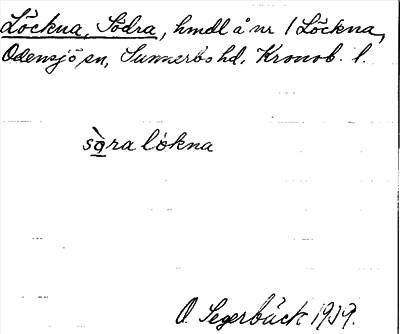 Löckna, Södra, hmdl å nr 1 Löckna,
Odensjö sn, Sunnerbo hd, Kronob. l.
sò̠ra lökna
O. Segerbäck 1939.